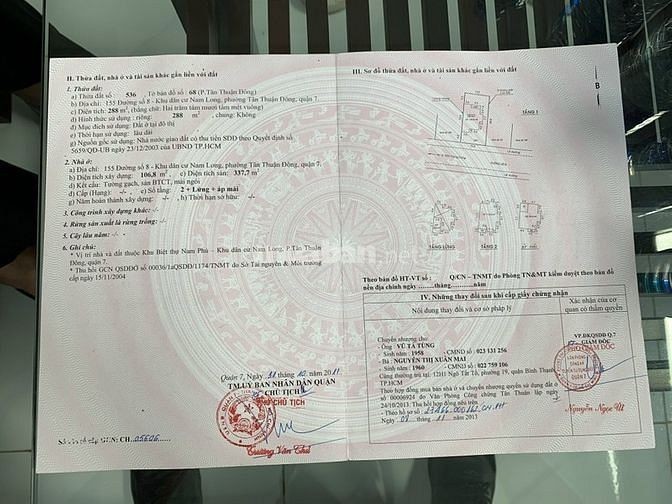 II. Thửa đất, nhà ở và tài sản khác gắn liền với đất
1. Thửa đất:
a) Thửa đất số: 536 Tờ bản đồ số: 68 (P.Tân Thuận Đông)
b) Địa chỉ: 155 Đường số 8 - Khu dân cư Nam Long, phường Tân Thuận Đông, quận 7.
c) Diện tích: 288 m² (bằng chữ: Hai trăm tám mươi tám mét vuông)
d) Hình thức sử dụng: riêng: 288 m², chung: Không
đ) Mục đích sử dụng: Đất ở tại đô thị
e) Thời hạn sử dụng: lâu dài
g) Nguồn gốc sử dụng: Nhà nước giao đất có thu tiền SDD theo Quyết định số
5659/QĐ-UB ngày 23/12/2003 của UBND TP.HCM
2. Nhà ở:
a) Địa chỉ: 155 Đường số 8 - Khu dân cư Nam Long, phường Tân Thuận Đông, quận 7.
b) Diện tích xây dựng: 106,8 m² c) Diện tích sàn: 337,7 m²
d) Kết cấu: Tường gạch, sàn BTCT, mái ngói
đ) Cấp (Hạng): -/- e) Số tầng: 2 + Lửng + áp mái
g) Năm hoàn thành xây dựng: -/- h) Thời hạn sở hữu: -/-
3. Công trình xây dựng khác: -/-
4. Rừng sản xuất là rừng trồng: -/-
5. Cây lâu năm: -/-
6. Ghi chú:
* Vị trí nhà và đất thuộc Khu Biệt thự Nam Phú - Khu dân cư Nam Long, P.Tân Thuận
Đông, quận 7.
* Thu hồi GCN QSDĐ số 00036/1aQSDĐ/1174/TNMT do Sở Tài nguyên & Môi trường
cấp ngày 15/11/2004
Quận 7, Ngày 31 / 10 /2011
TM.UỶ BAN NHÂN DÂN QUẬN
CHỦ TỊCH
CHỦ TỊCH
Trương Văn Chử
Số vào sổ cấp GCN: CH 05606
III. Sơ đồ thửa đất, nhà ở và tài sản khác gắn liền với đất
B
TẦNG 1
TẦNG LỬNG
TẦNG 2
ÁP MÁI
Theo bản đồ HT-VT số : Q/CN - TNMT do Phòng TN&MT kiểm duyệt theo bản đồ
nền địa chính ngày ....../....../năm
IV. Những thay đổi sau khi cấp giấy chứng nhận
Nội dung thay đổi và cơ sở pháp lý
Xác nhận của cơ
quan có thẩm quyền
Chuyển nhượng cho:
Ông: VŨ TÁ TÙNG
- Sinh năm : 1958 - CMND số : 023 131 256
Bà : NGUYỄN THỊ XUÂN MAI
- Sinh năm : 1960 - CMND số : 022 759 106
Cùng thường trú tại: 12H1 Ngô Tất Tố, phường 19, quận Bình Thạnh,
TP.HCM
Theo hợp đồng mua bán nhà ở và chuyển nhượng quyền sử dụng đất ở
số 00006924 do Văn Phòng Công chứng Tân Thuận lập ngày
24/10/2013.
- Theo hồ sơ số
Ngày 08 / 11 /2013
VP.ĐKQSDĐ Q.7
GIÁM ĐỐC
Nguyễn Ngọc Út